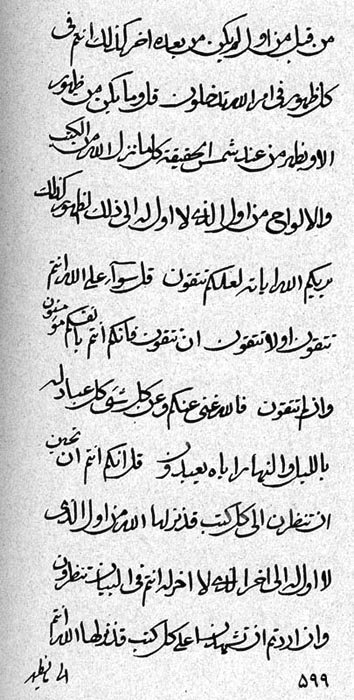 من قبل من اول ولم يكن من بعده اخر كذلك انتم فى
كل ظهور فى امر الله تدخلون قل وما يكن من ظهور
الا ويظهر من عند شمس الحقيقة كل ما نزل الله من الكتب
والالواح من اول الذى لا اول له الى ذلك الظهور كذلك
يريكم الله اياته لعلكم تتقون قل سواء على الله انتم
تتقون اولا تتقون ان تتقون فانكم انتم بانفسكم مؤمنون
وان لم تتقون فالله غنى عنكم وعن كل شىء كل عباد له
بالليل والنهار اياه يعبدون قل انكم انتم ان تحبن
ان تنظرن الى كل كتب قد نزلها الله من اول الذى
لا اول له الى اخر الذى لا اخر له انتم فى البيان تنظرون
وان اردتم ان تشهدن على كل كتب قد نزلها الله انتم
٥٩٩